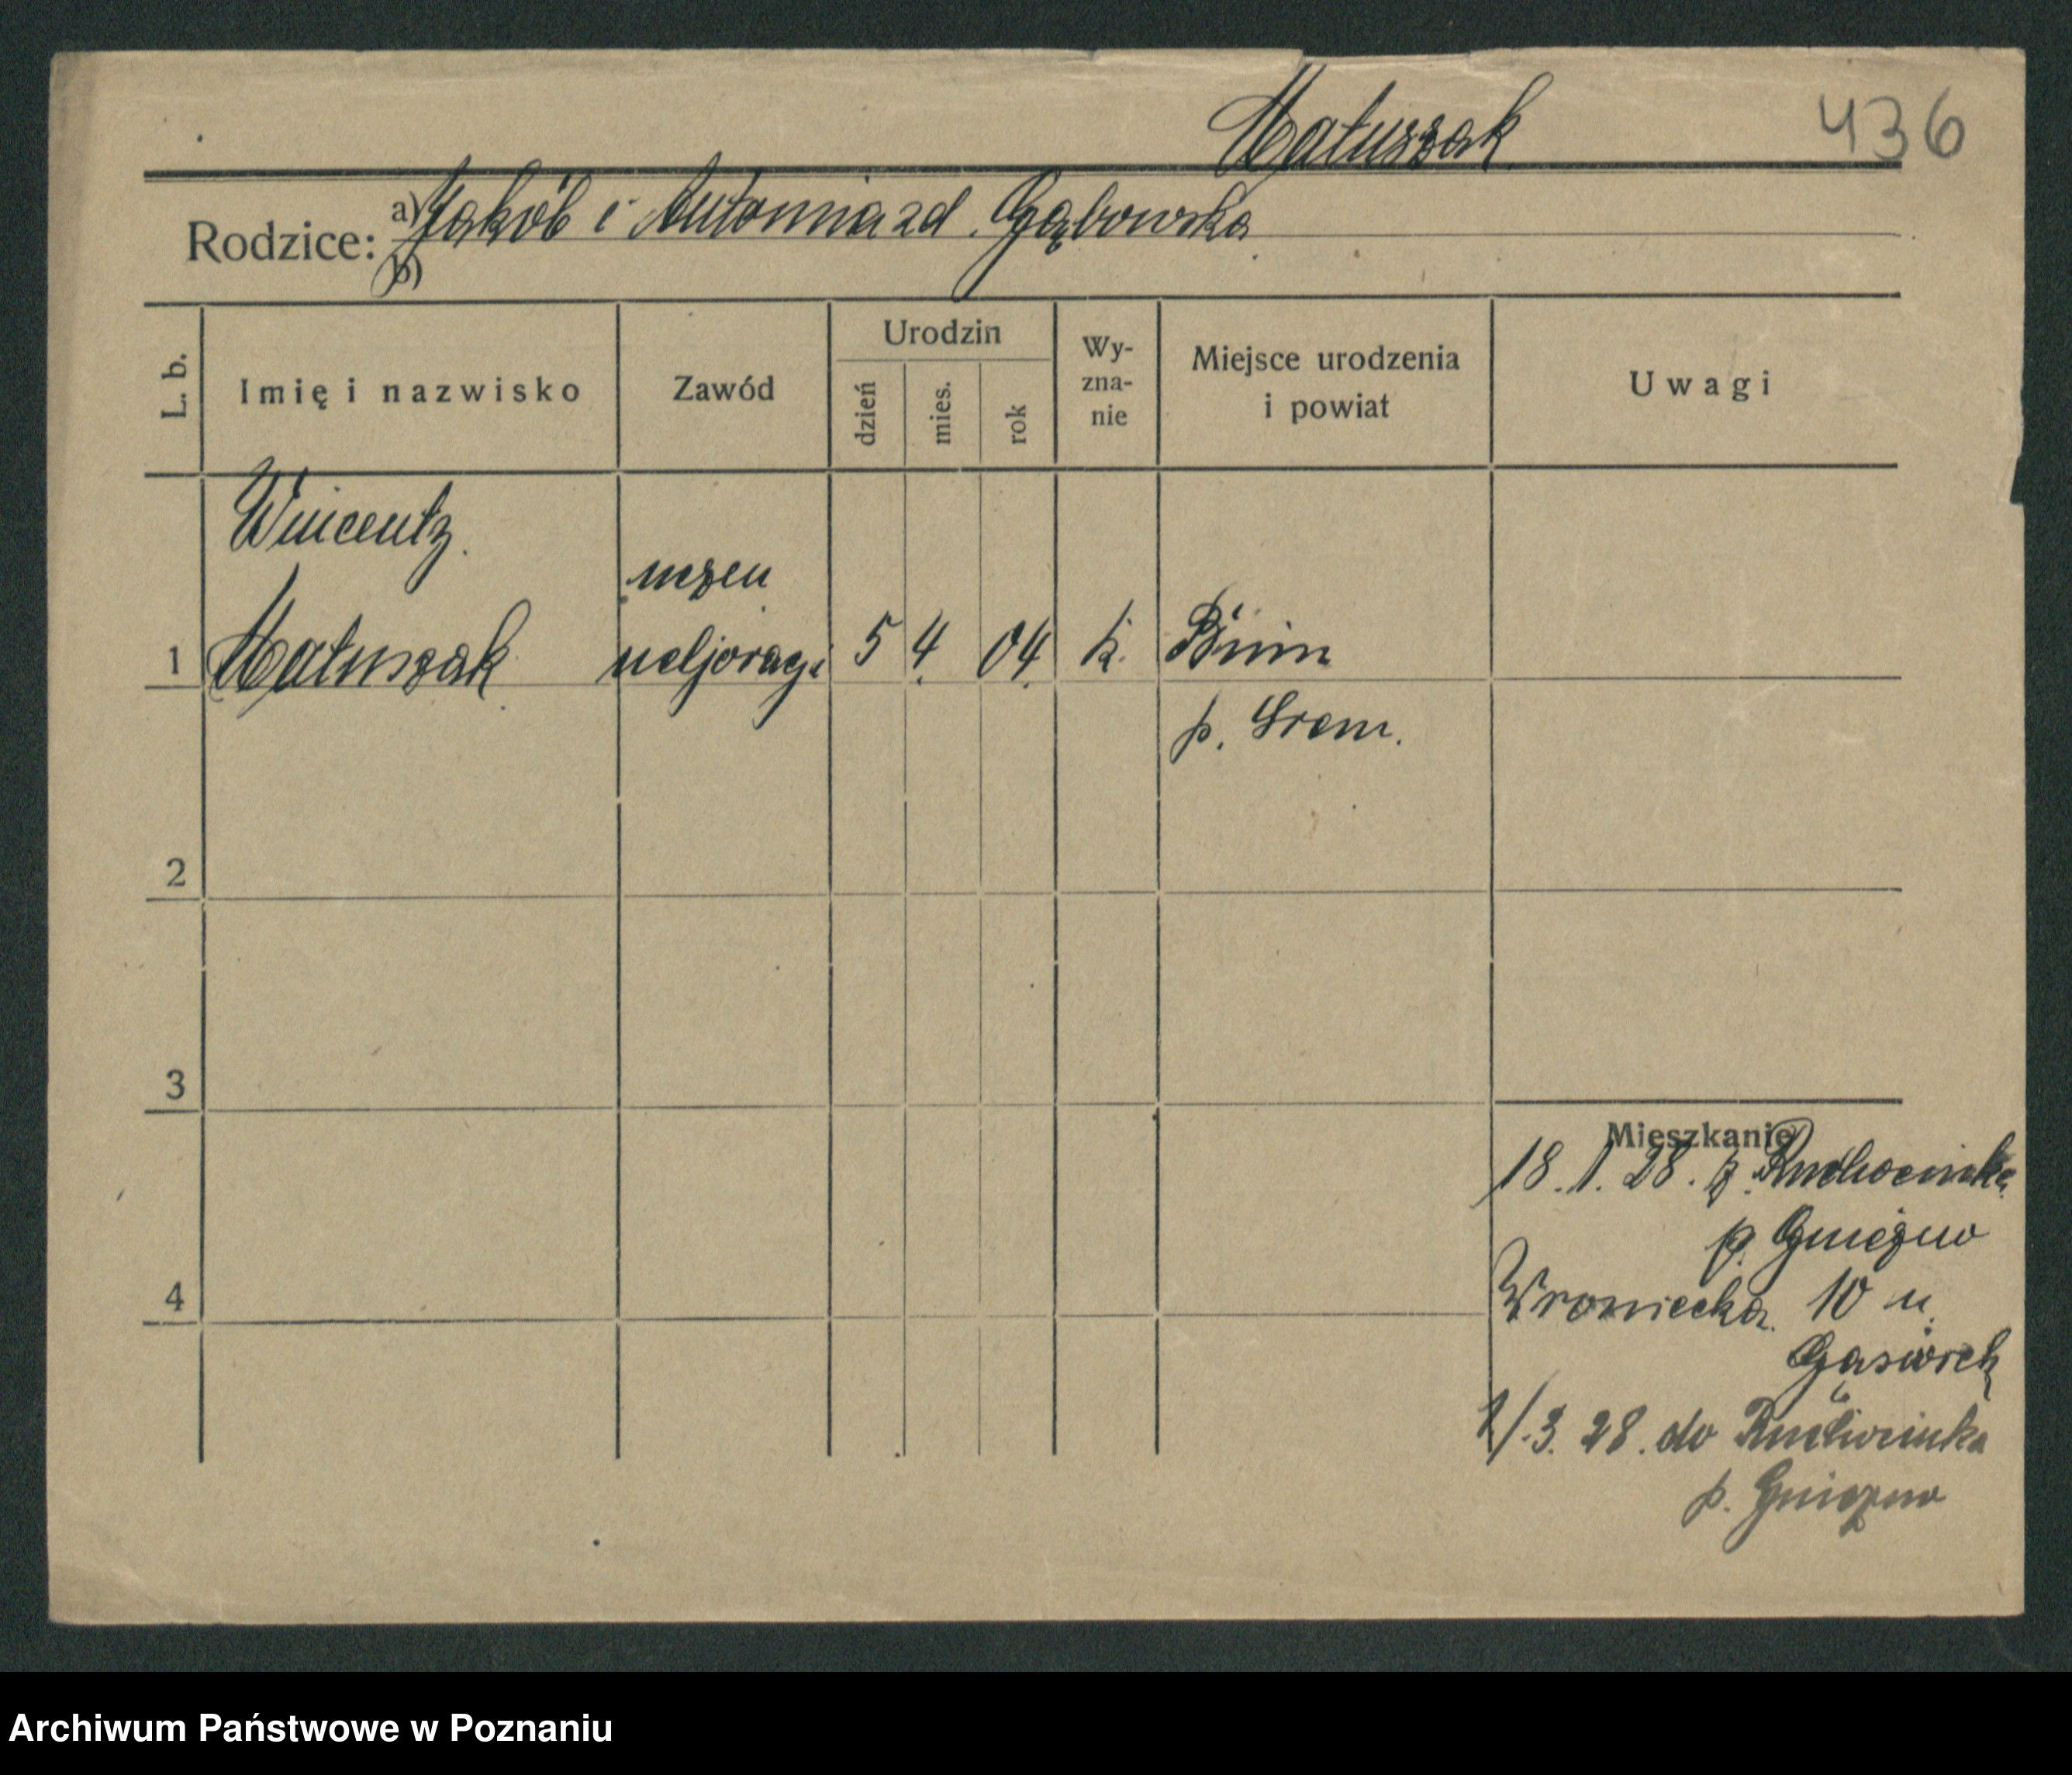 Matuszak
436
Rodzice: a) Jakób i Antonina zd. Gąbowska
b)
L. b.
Imię i nazwisko
Zawód
Urodzin
dzień
mies.
rok
Wy-
zna-
nie
Miejsce urodzenia
i powiat
Uwagi
Wincenty
uczeń
1 Matuszak 5 4 04 k. Bnin
p. Srem.
2
3
Mieszkanie
18.1.28. z
p. Gniezno
4
Wroniecka 10 u.
Gąsiorek
1/.3.28. do
p. Gniezno
Archiwum Państwowe w Poznaniu